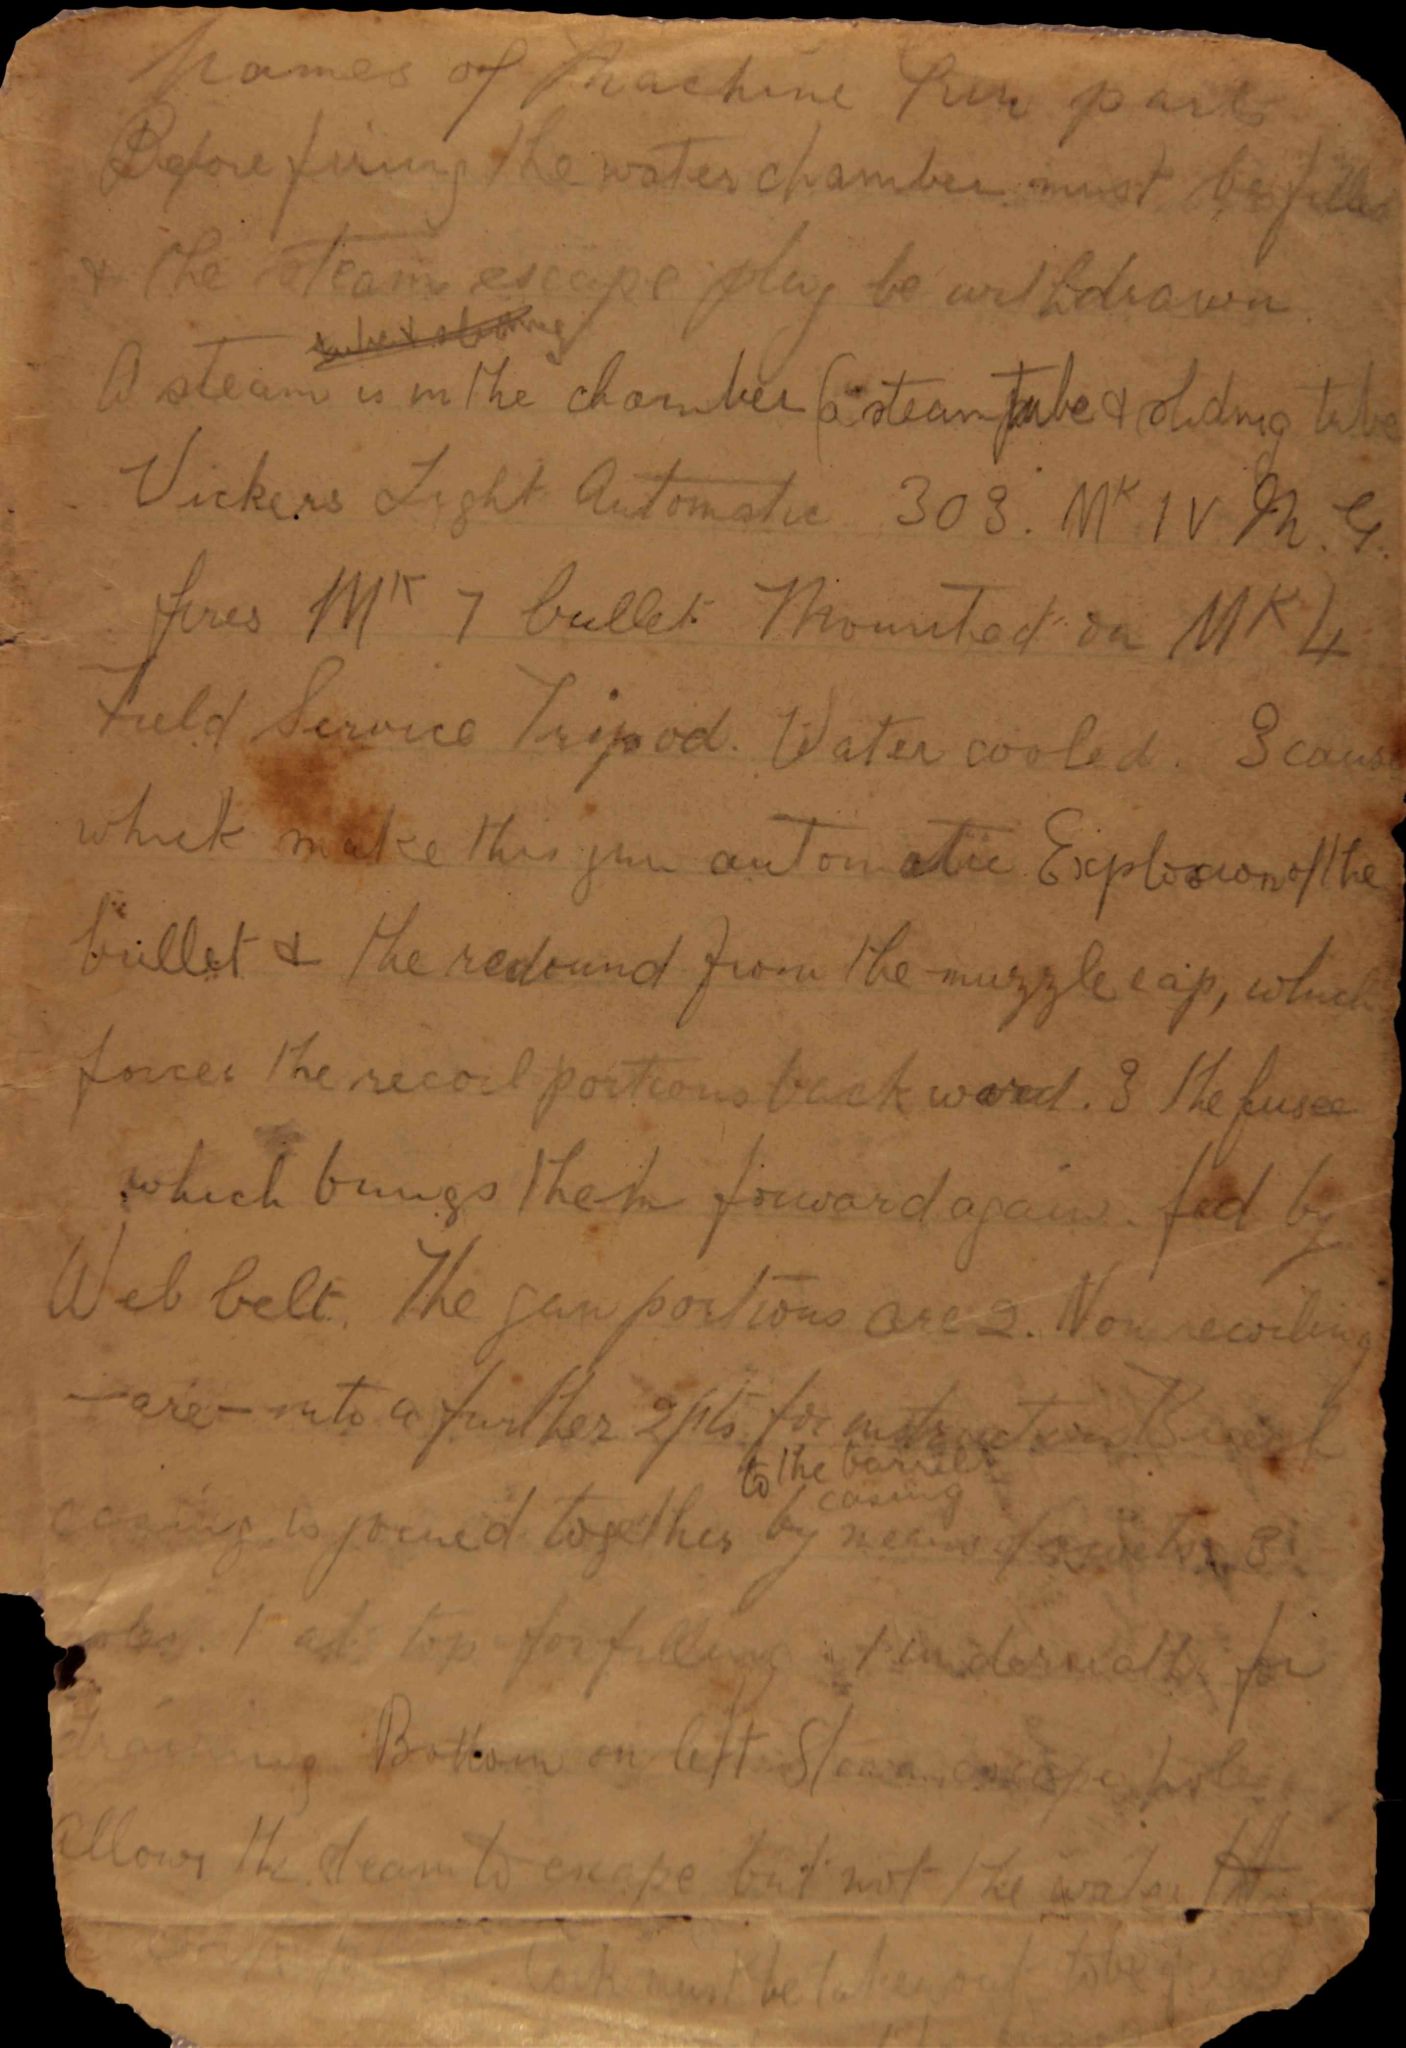 Names of Machine Gun parts
Before firing the water chamber must be filled
& the steam escape plug be withdrawn.
tube & sliding
A steam is in the chamber (a steam tube & sliding tube
Vickers Light Automatic 303. MK 1 V M. G.
fires MK 7 bullet Mounted on MK 4
Field Service Tripod. Water cooled. 3 cause
which make this gun automatic Explosion of the
bullet & the redound from the muzzle cap, which
forces the recoil portions back ward. 3 the fusee
which brings them forward again. fed by
Web belt. The gun portions are 2. Non recoiling
- are - into a further 2 pts for instruction
to the barrel
casing
casing is joined together by means of rivets. 3
1 at top for filling. 1 underneath for
draining Bottom on left Steam escape hole
Allows the steam to escape but not the water
Cork must be taken out to be